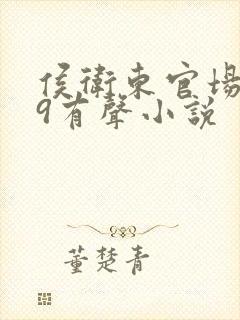 侯衛東官場
9有聲小説
董楚青